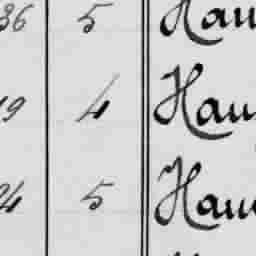 36 5 Hau
19 4 Hau
24 5 Hau